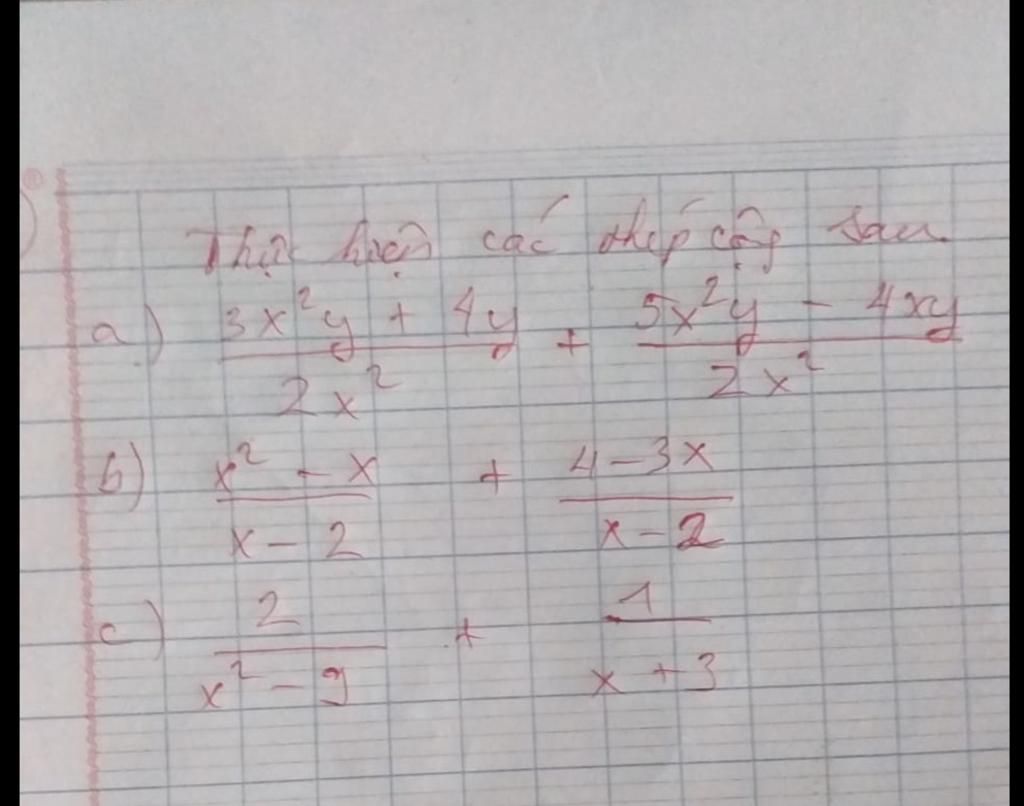 Thực hiện các phép cộng sau
a) \frac{3x^2y + 4y}{2x^2} + \frac{5x^2y - 4xy}{2x^2}
b) \frac{x^2 - x}{x - 2} + \frac{4 - 3x}{x - 2}
c) \frac{2}{x^2 - 9} + \frac{1}{x + 3}